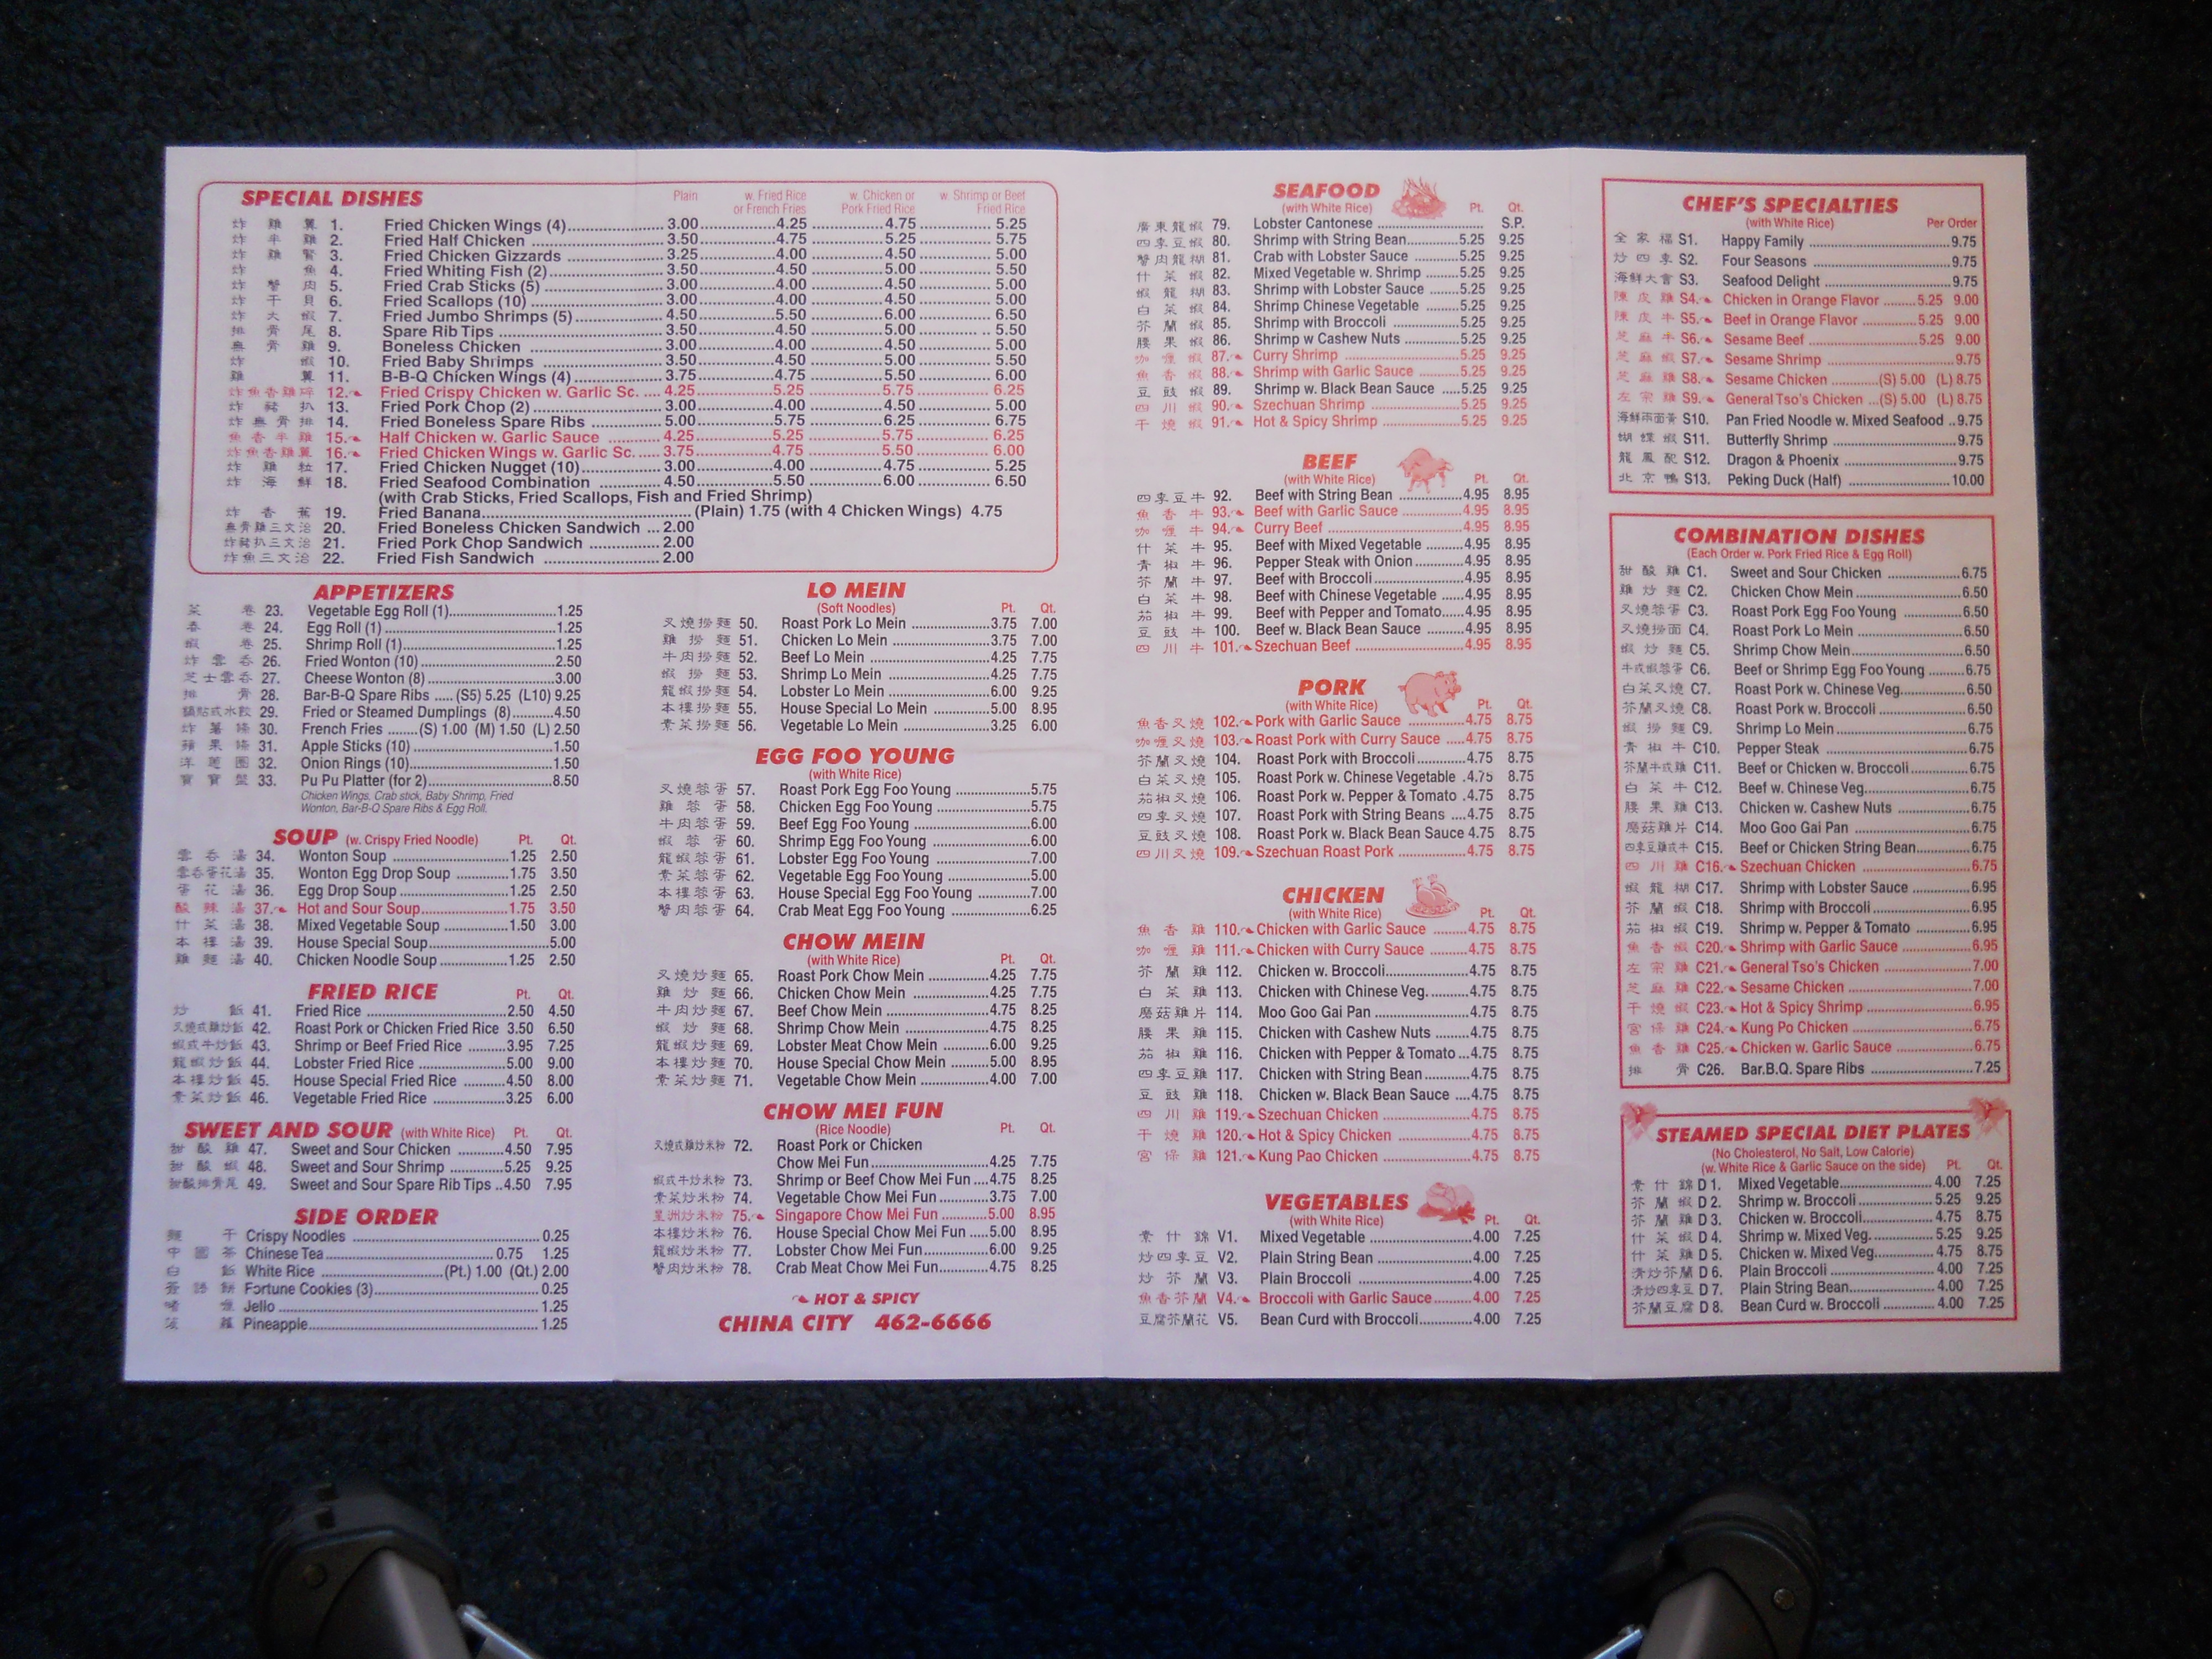 SPECIAL DISHES Plain w. Fried Rice or French Fries w. Chicken or Pork Fried Rice w. Shrimp or Beef Fried Rice
炸雞翼 1. Fried Chicken Wings (4) 3.00 4.25 4.75 5.25
炸半雞 2. Fried Half Chicken 3.50 4.75 5.25 5.75
炸雞腎 3. Fried Chicken Gizzards 3.25 4.00 4.50 5.00
炸魚 4. Fried Whiting Fish (2) 3.50 4.50 5.00 5.50
炸蟹肉 5. Fried Crab Sticks (5) 3.00 4.00 4.50 5.00
炸干貝 6. Fried Scallops (10) 3.00 4.00 4.50 5.00
炸大蝦 7. Fried Jumbo Shrimps (5) 4.50 5.50 6.00 6.50
排骨尾 8. Spare Rib Tips 3.50 4.50 5.00 5.50
無骨雞 9. Boneless Chicken 3.00 4.00 4.50 5.00
炸蝦 10. Fried Baby Shrimps 3.50 4.50 5.00 5.50
雞翼 11. B-B-Q Chicken Wings (4) 3.75 4.75 5.50 6.00
炸魚香雞碎 12. Fried Crispy Chicken w. Garlic Sc. 4.25 5.25 5.75 6.25
炸豬扒 13. Fried Pork Chop (2) 3.00 4.00 4.50 5.00
炸無骨排 14. Fried Boneless Spare Ribs 5.00 5.75 6.25 6.75
魚香半雞 15. Half Chicken w. Garlic Sauce 4.25 5.25 5.75 6.25
炸魚香雞翼 16. Fried Chicken Wings w. Garlic Sc. 3.75 4.75 5.50 6.00
炸雞粒 17. Fried Chicken Nugget (10) 3.00 4.00 4.75 5.25
炸海鮮 18. Fried Seafood Combination 4.50 5.50 6.00 6.50
(with Crab Sticks, Fried Scallops, Fish and Fried Shrimp)
炸香蕉 19. Fried Banana (Plain) 1.75 (with 4 Chicken Wings) 4.75
無骨雞三文治 20. Fried Boneless Chicken Sandwich 2.00
炸豬扒三文治 21. Fried Pork Chop Sandwich 2.00
炸魚三文治 22. Fried Fish Sandwich 2.00
APPETIZERS
菜卷 23. Vegetable Egg Roll (1) 1.25
春卷 24. Egg Roll (1) 1.25
蝦卷 25. Shrimp Roll (1) 1.25
炸雲吞 26. Fried Wonton (10) 2.50
芝士雲吞 27. Cheese Wonton (8) 3.00
排骨 28. Bar-B-Q Spare Ribs (S5) 5.25 (L10) 9.25
鍋貼或水餃 29. Fried or Steamed Dumplings (8) 4.50
炸薯條 30. French Fries (S) 1.00 (M) 1.50 (L) 2.50
蘋果條 31. Apple Sticks (10) 1.50
洋蔥圈 32. Onion Rings (10) 1.50
寶寶盤 33. Pu Pu Platter (for 2) 8.50
Chicken Wings, Crab stick, Baby Shrimp, Fried
Wonton, Bar-B-Q Spare Ribs & Egg Roll.
SOUP (w. Crispy Fried Noodle) Pt. Qt.
雲吞湯 34. Wonton Soup 1.25 2.50
雲吞蛋花湯 35. Wonton Egg Drop Soup 1.75 3.50
蛋花湯 36. Egg Drop Soup 1.25 2.50
酸辣湯 37. Hot and Sour Soup 1.75 3.50
什菜湯 38. Mixed Vegetable Soup 1.50 3.00
本樓湯 39. House Special Soup 5.00
雞麵湯 40. Chicken Noodle Soup 1.25 2.50
FRIED RICE Pt. Qt.
炒飯 41. Fried Rice 2.50 4.50
叉燒或雞炒飯 42. Roast Pork or Chicken Fried Rice 3.50 6.50
蝦或牛炒飯 43. Shrimp or Beef Fried Rice 3.95 7.25
龍蝦炒飯 44. Lobster Fried Rice 5.00 9.00
本樓炒飯 45. House Special Fried Rice 4.50 8.00
素菜炒飯 46. Vegetable Fried Rice 3.25 6.00
SWEET AND SOUR (with White Rice) Pt. Qt.
甜酸雞 47. Sweet and Sour Chicken 4.50 7.95
甜酸蝦 48. Sweet and Sour Shrimp 5.25 9.25
甜酸排骨尾 49. Sweet and Sour Spare Rib Tips 4.50 7.95
SIDE ORDER
麵干 Crispy Noodles 0.25
中國茶 Chinese Tea 0.75 1.25
白飯 White Rice (Pt.) 1.00 (Qt.) 2.00
簽語餅 Fortune Cookies (3) 0.25
Jello 1.25
菠蘿 Pineapple 1.25
LO MEIN
(Soft Noodles) Pt. Qt.
叉燒撈麵 50. Roast Pork Lo Mein 3.75 7.00
雞撈麵 51. Chicken Lo Mein 3.75 7.00
牛肉撈麵 52. Beef Lo Mein 4.25 7.75
蝦撈麵 53. Shrimp Lo Mein 4.25 7.75
龍蝦撈麵 54. Lobster Lo Mein 6.00 9.25
本樓撈麵 55. House Special Lo Mein 5.00 8.95
素菜撈麵 56. Vegetable Lo Mein 3.25 6.00
EGG FOO YOUNG
(with White Rice)
叉燒蓉蛋 57. Roast Pork Egg Foo Young 5.75
雞蓉蛋 58. Chicken Egg Foo Young 5.75
牛肉蓉蛋 59. Beef Egg Foo Young 6.00
蝦蓉蛋 60. Shrimp Egg Foo Young 6.00
龍蝦蓉蛋 61. Lobster Egg Foo Young 7.00
素菜蓉蛋 62. Vegetable Egg Foo Young 5.00
本樓蓉蛋 63. House Special Egg Foo Young 7.00
蟹肉蓉蛋 64. Crab Meat Egg Foo Young 6.25
CHOW MEIN
(with White Rice) Pt. Qt.
叉燒炒麵 65. Roast Pork Chow Mein 4.25 7.75
雞炒麵 66. Chicken Chow Mein 4.25 7.75
牛肉炒麵 67. Beef Chow Mein 4.75 8.25
蝦炒麵 68. Shrimp Chow Mein 4.75 8.25
龍蝦炒麵 69. Lobster Meat Chow Mein 6.00 9.25
本樓炒麵 70. House Special Chow Mein 5.00 8.95
素菜炒麵 71. Vegetable Chow Mein 4.00 7.00
CHOW MEI FUN
(Rice Noodle) Pt. Qt.
叉燒或雞炒米粉 72. Roast Pork or Chicken
Chow Mei Fun 4.25 7.75
蝦或牛炒米粉 73. Shrimp or Beef Chow Mei Fun 4.75 8.25
素菜炒米粉 74. Vegetable Chow Mei Fun 3.75 7.00
星洲炒米粉 75. Singapore Chow Mei Fun 5.00 8.95
本樓炒米粉 76. House Special Chow Mei Fun 5.00 8.95
龍蝦炒米粉 77. Lobster Chow Mei Fun 6.00 9.25
蟹肉炒米粉 78. Crab Meat Chow Mei Fun 4.75 8.25
HOT & SPICY
CHINA CITY 462-6666
SEAFOOD
(with White Rice) Pt. Qt.
廣東龍蝦 79. Lobster Cantonese S.P.
四季豆蝦 80. Shrimp with String Bean 5.25 9.25
蟹肉龍糊 81. Crab with Lobster Sauce 5.25 9.25
什菜蝦 82. Mixed Vegetable w. Shrimp 5.25 9.25
蝦龍糊 83. Shrimp with Lobster Sauce 5.25 9.25
白菜蝦 84. Shrimp Chinese Vegetable 5.25 9.25
芥蘭蝦 85. Shrimp with Broccoli 5.25 9.25
腰果蝦 86. Shrimp w Cashew Nuts 5.25 9.25
咖喱蝦 87. Curry Shrimp 5.25 9.25
魚香蝦 88. Shrimp with Garlic Sauce 5.25 9.25
豆豉蝦 89. Shrimp w. Black Bean Sauce 5.25 9.25
四川蝦 90. Szechuan Shrimp 5.25 9.25
干燒蝦 91. Hot & Spicy Shrimp 5.25 9.25
BEEF
(with White Rice) Pt. Qt.
四季豆牛 92. Beef with String Bean 4.95 8.95
魚香牛 93. Beef with Garlic Sauce 4.95 8.95
咖喱牛 94. Curry Beef 4.95 8.95
什菜牛 95. Beef with Mixed Vegetable 4.95 8.95
青椒牛 96. Pepper Steak with Onion 4.95 8.95
芥蘭牛 97. Beef with Broccoli 4.95 8.95
白菜牛 98. Beef with Chinese Vegetable 4.95 8.95
茄椒牛 99. Beef with Pepper and Tomato 4.95 8.95
豆豉牛 100. Beef w. Black Bean Sauce 4.95 8.95
四川牛 101. Szechuan Beef 4.95 8.95
PORK
(with White Rice) Pt. Qt.
魚香叉燒 102. Pork with Garlic Sauce 4.75 8.75
咖喱叉燒 103. Roast Pork with Curry Sauce 4.75 8.75
芥蘭叉燒 104. Roast Pork with Broccoli 4.75 8.75
白菜叉燒 105. Roast Pork w. Chinese Vegetable 4.75 8.75
茄椒叉燒 106. Roast Pork w. Pepper & Tomato 4.75 8.75
四季叉燒 107. Roast Pork with String Beans 4.75 8.75
豆豉叉燒 108. Roast Pork w. Black Bean Sauce 4.75 8.75
四川叉燒 109. Szechuan Roast Pork 4.75 8.75
CHICKEN
(with White Rice) Pt. Qt.
魚香雞 110. Chicken with Garlic Sauce 4.75 8.75
咖喱雞 111. Chicken with Curry Sauce 4.75 8.75
芥蘭雞 112. Chicken w. Broccoli 4.75 8.75
白菜雞 113. Chicken with Chinese Veg. 4.75 8.75
蘑菇雞片 114. Moo Goo Gai Pan 4.75 8.75
腰果雞 115. Chicken with Cashew Nuts 4.75 8.75
茄椒雞 116. Chicken with Pepper & Tomato 4.75 8.75
四季豆雞 117. Chicken with String Bean 4.75 8.75
豆豉雞 118. Chicken w. Black Bean Sauce 4.75 8.75
四川雞 119. Szechuan Chicken 4.75 8.75
干燒雞 120. Hot & Spicy Chicken 4.75 8.75
宮保雞 121. Kung Pao Chicken 4.75 8.75
VEGETABLES
(with White Rice) Pt. Qt.
素什錦 V1. Mixed Vegetable 4.00 7.25
炒四季豆 V2. Plain String Bean 4.00 7.25
炒芥蘭 V3. Plain Broccoli 4.00 7.25
魚香芥蘭 V4. Broccoli with Garlic Sauce 4.00 7.25
豆腐芥蘭花 V5. Bean Curd with Broccoli 4.00 7.25
CHEF'S SPECIALTIES
(with White Rice) Per Order
全家福 S1. Happy Family 9.75
炒四季 S2. Four Seasons 9.75
海鮮大會 S3. Seafood Delight 9.75
陳皮雞 S4. Chicken in Orange Flavor 5.25 9.00
陳皮牛 S5. Beef in Orange Flavor 5.25 9.00
芝麻牛 S6. Sesame Beef 5.25 9.00
芝麻蝦 S7. Sesame Shrimp 9.75
芝麻雞 S8. Sesame Chicken (S) 5.00 (L) 8.75
左宗雞 S9. General Tso's Chicken (S) 5.00 (L) 8.75
海鮮兩面黃 S10. Pan Fried Noodle w. Mixed Seafood 9.75
蝴蝶蝦 S11. Butterfly Shrimp 9.75
龍鳳配 S12. Dragon & Phoenix 9.75
北京鴨 S13. Peking Duck (Half) 10.00
COMBINATION DISHES
(Each Order w. Pork Fried Rice & Egg Roll)
甜酸雞 C1. Sweet and Sour Chicken 6.75
雞炒麵 C2. Chicken Chow Mein 6.50
叉燒蓉蛋 C3. Roast Pork Egg Foo Young 6.50
叉燒撈面 C4. Roast Pork Lo Mein 6.50
蝦炒麵 C5. Shrimp Chow Mein 6.50
牛或蝦蓉蛋 C6. Beef or Shrimp Egg Foo Young 6.75
白菜叉燒 C7. Roast Pork w. Chinese Veg. 6.50
芥蘭叉燒 C8. Roast Pork w. Broccoli 6.50
蝦撈麵 C9. Shrimp Lo Mein 6.75
青椒牛 C10. Pepper Steak 6.75
芥蘭牛或雞 C11. Beef or Chicken w. Broccoli 6.75
白菜牛 C12. Beef w. Chinese Veg. 6.75
腰果雞 C13. Chicken w. Cashew Nuts 6.75
蘑菇雞片 C14. Moo Goo Gai Pan 6.75
四季豆雞或牛 C15. Beef or Chicken String Bean 6.75
四川雞 C16. Szechuan Chicken 6.75
蝦龍糊 C17. Shrimp with Lobster Sauce 6.95
芥蘭蝦 C18. Shrimp with Broccoli 6.95
茄椒蝦 C19. Shrimp w. Pepper & Tomato 6.95
魚香蝦 C20. Shrimp with Garlic Sauce 6.95
左宗雞 C21. General Tso's Chicken 7.00
芝麻雞 C22. Sesame Chicken 7.00
干燒蝦 C23. Hot & Spicy Shrimp 6.95
宮保雞 C24. Kung Po Chicken 6.75
魚香雞 C25. Chicken w. Garlic Sauce 6.75
排骨 C26. Bar.B.Q. Spare Ribs 7.25
STEAMED SPECIAL DIET PLATES
(No Cholesterol, No Salt, Low Calorie)
(w. White Rice & Garlic Sauce on the side) Pt. Qt.
素什錦 D 1. Mixed Vegetable 4.00 7.25
芥蘭蝦 D 2. Shrimp w. Broccoli 5.25 9.25
芥蘭雞 D 3. Chicken w. Broccoli 4.75 8.75
什菜蝦 D 4. Shrimp w. Mixed Veg. 5.25 9.25
什菜雞 D 5. Chicken w. Mixed Veg. 4.75 8.75
清炒芥蘭 D 6. Plain Broccoli 4.00 7.25
清炒四季豆 D 7. Plain String Bean 4.00 7.25
芥蘭豆腐 D 8. Bean Curd w. Broccoli 4.00 7.25